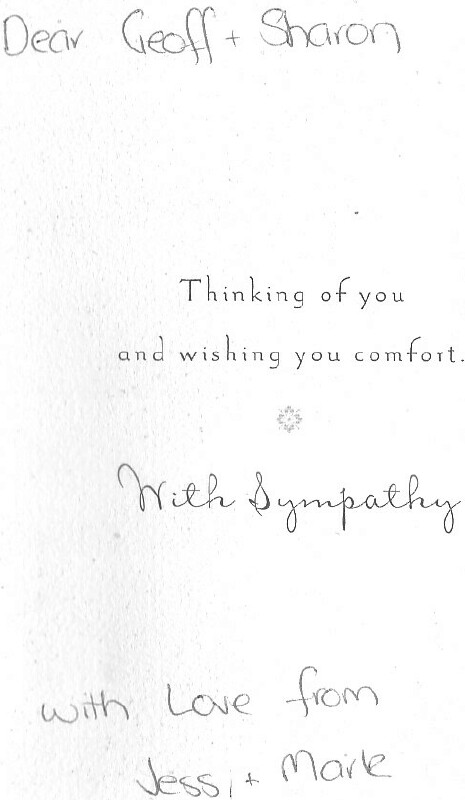 Dear Geoff + Sharon
Thinking of you
and wishing you comfort.
With Sympathy
with Love from
Jess, + Mark